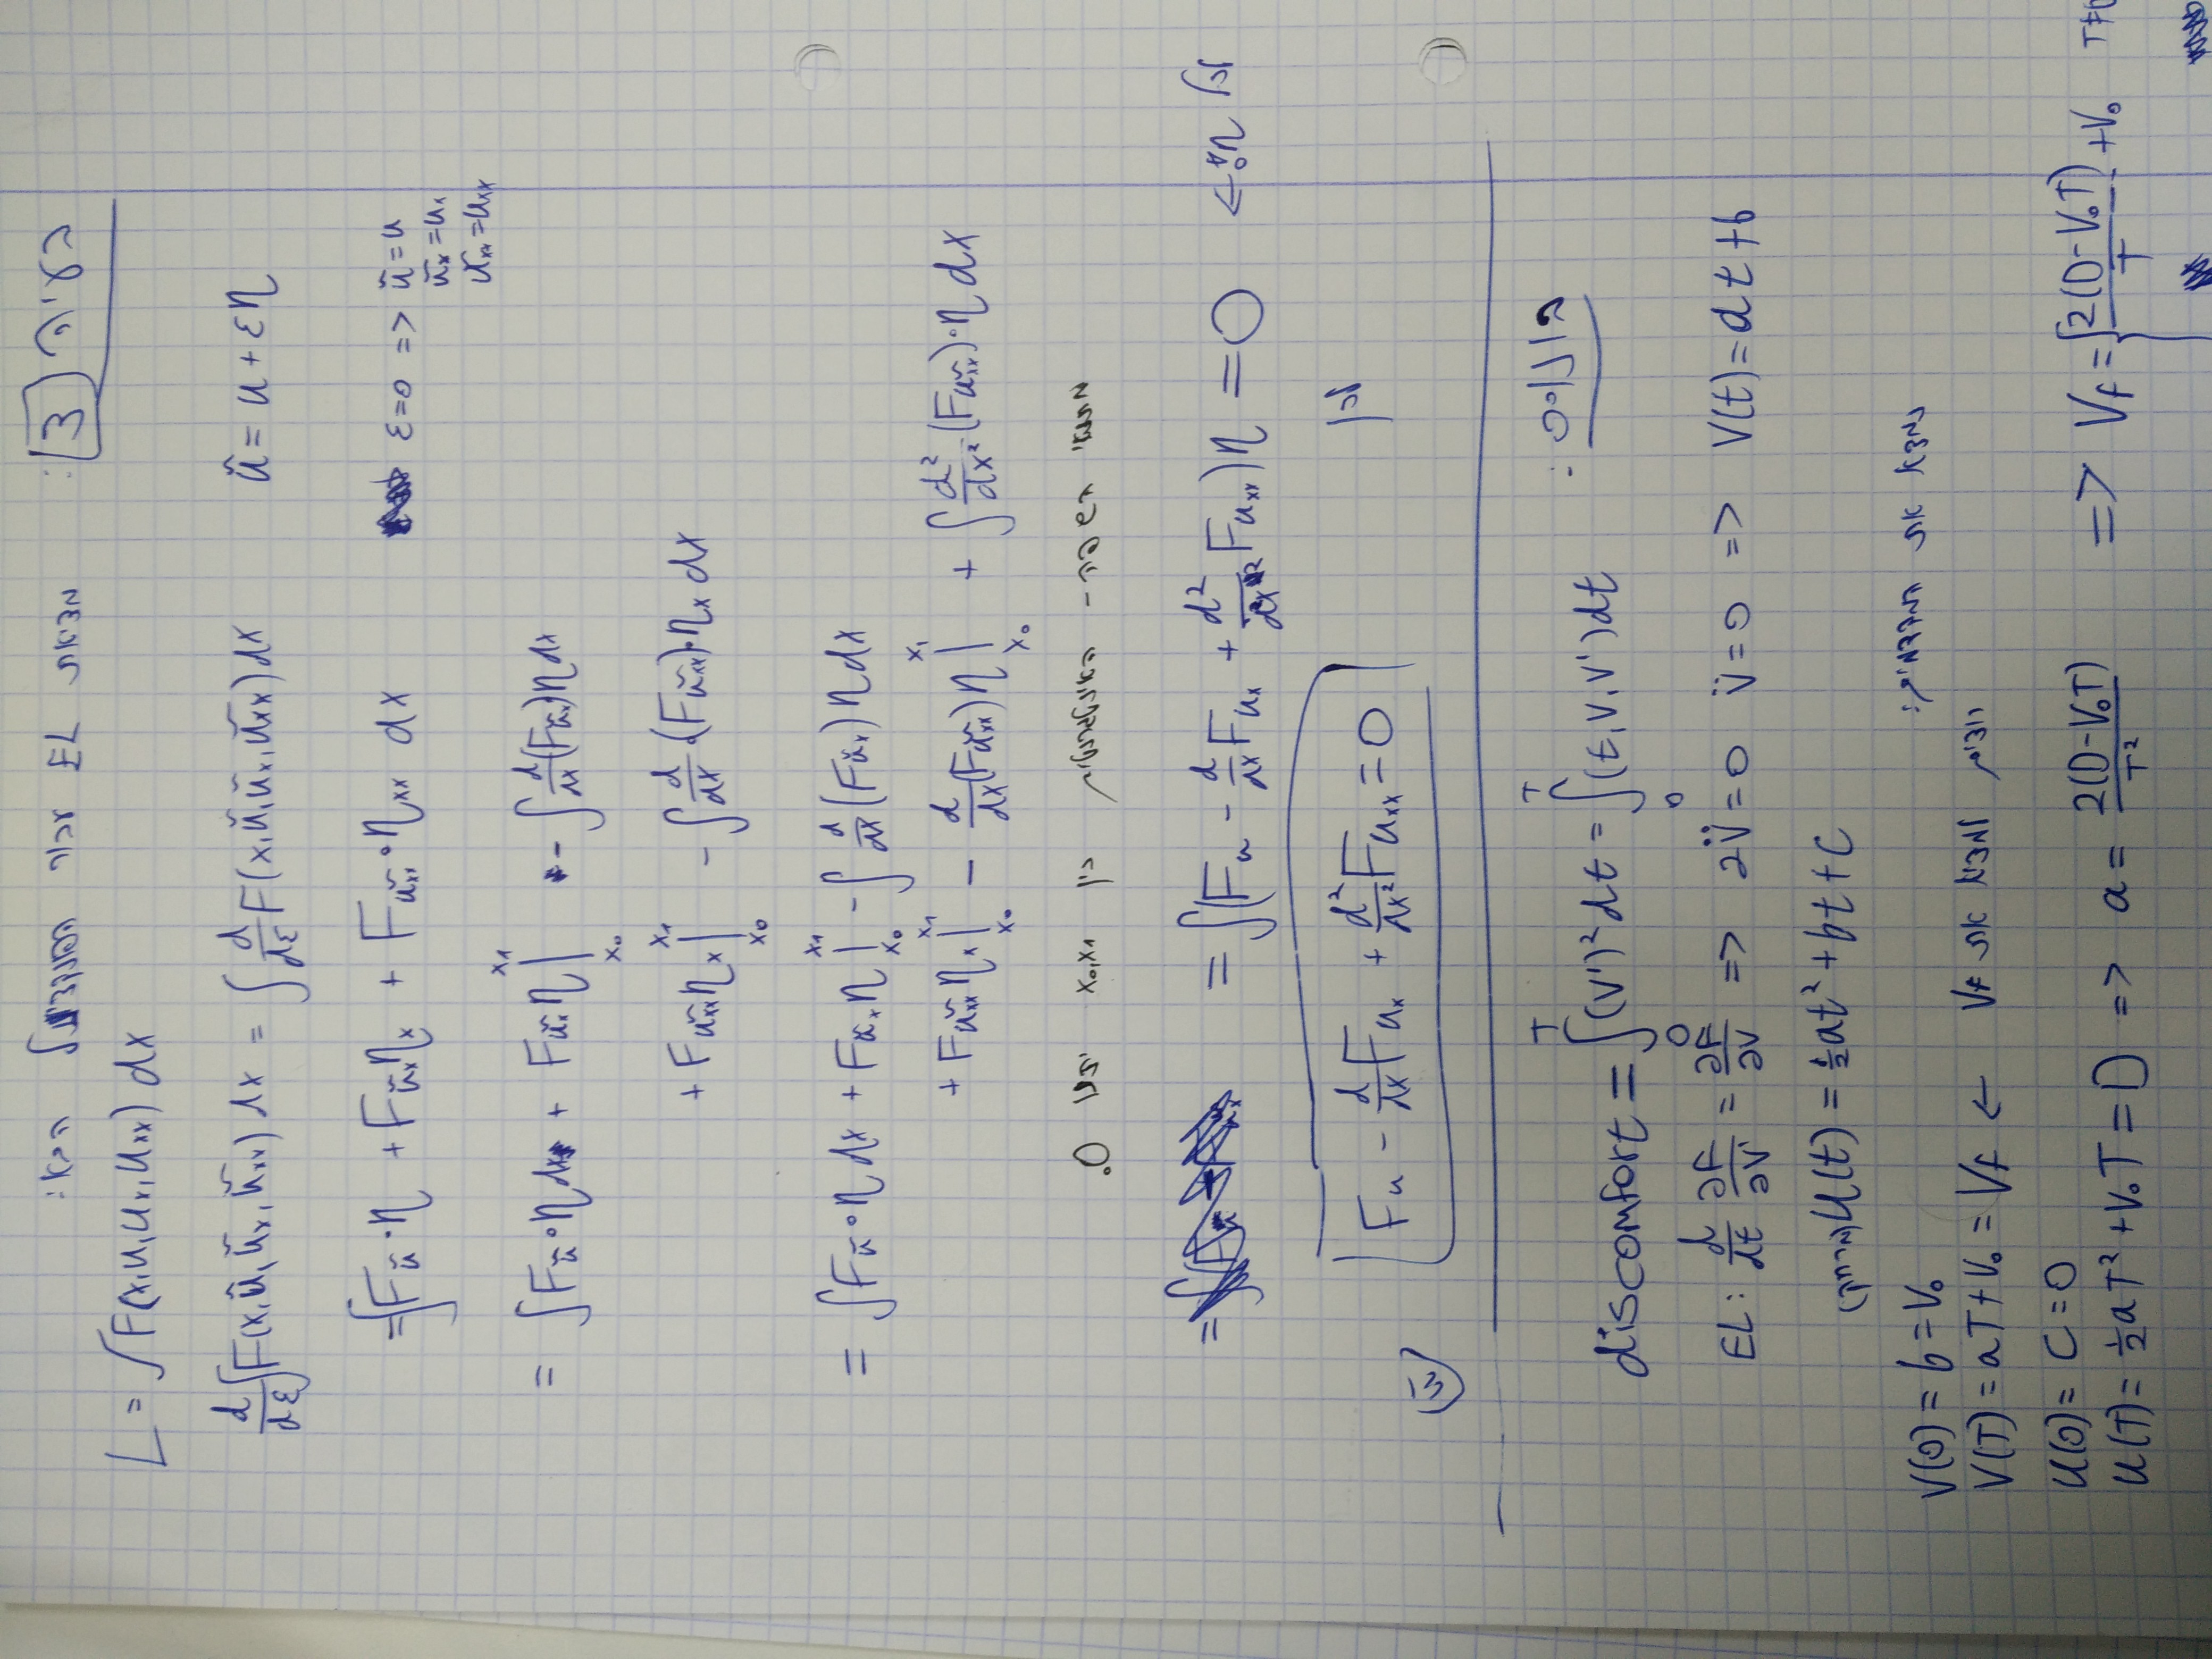 בעיה 3: מציאת EL עבור הפונקציונל הבא:
L = ∫F(x,u,uₓ,uₓₓ) dx
d/dε ∫F(x,ũ,ũₓ,ũₓₓ) dx = ∫ d/dε F(x,ũ,ũₓ,ũₓₓ)dx ũ = u + εη
= ∫F_ũ·η + F_ũₓ ηₓ + F_ũₓₓ·ηₓₓ dx ε=0 => ũ=u
ũₓ=uₓ
ũₓₓ=uₓₓ
= ∫F_ũ·η dx + F_ũₓ η |ₓ₀ˣ¹ - ∫ d/dx (F_ũₓ)η dx
+ F_ũₓₓ ηₓ |ₓ₀ˣ¹ - ∫ d/dx (F_ũₓₓ)·ηₓ dx
= ∫F_ũ·η dx + F_ũₓ η |ₓ₀ˣ¹ - ∫ d/dx (F_ũₓ) η dx
+ F_ũₓₓ ηₓ |ₓ₀ˣ¹ - d/dx (F_ũₓₓ) η |ₓ₀ˣ¹ + ∫ d²/dx² (F_ũₓₓ)·η dx
מתנאי השפה - בין x₀,x₁ יתנו 0.
= = ∫(F_u - d/dx F_uₓ + d²/dx² F_uₓₓ) η = 0 ← η לכל
לכן
F_u - d/dx F_uₓ + d²/dx² F_uₓₓ = 0
בונוס:
discomfort = ∫₀ᵀ (V')² dt = ∫₀ᵀ (t,V,V')dt
EL: d/dt ∂F/∂V' = ∂F/∂V => 2V̈=0 V̈=0 => V(t)=at+b
(מרחק) U(t) = ½at²+bt+C
נמצא את המקדמים:
V(0) = b = V₀
V(T) = aT+V₀ = Vf ← רוצים למצוא את Vf
U(0) = C = 0
U(T) = ½aT²+V₀T = D => a = 2(D-V₀T)/T² => Vf = { 2(D-V₀T)/T +V₀ T≠0